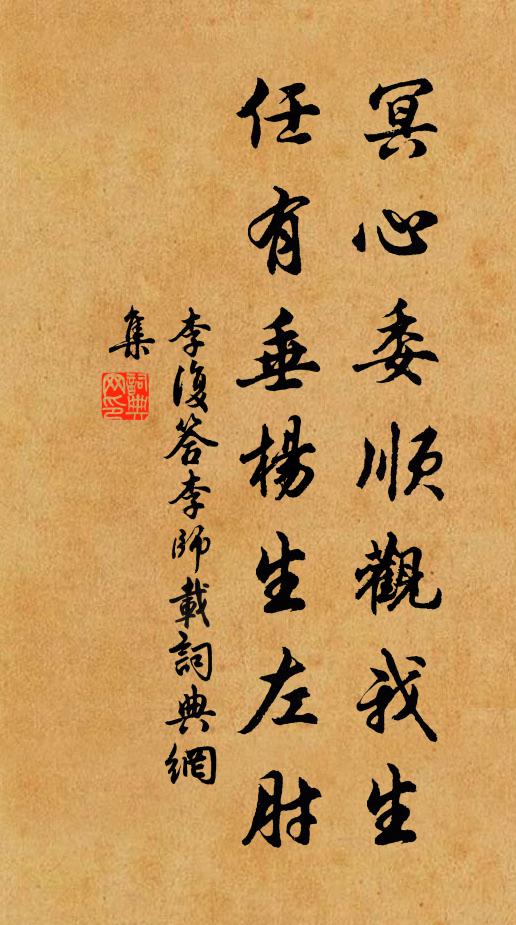 冥心委順觀我生
任有垂楊生左肘
李復答李師載詞典網
集
詞典網印